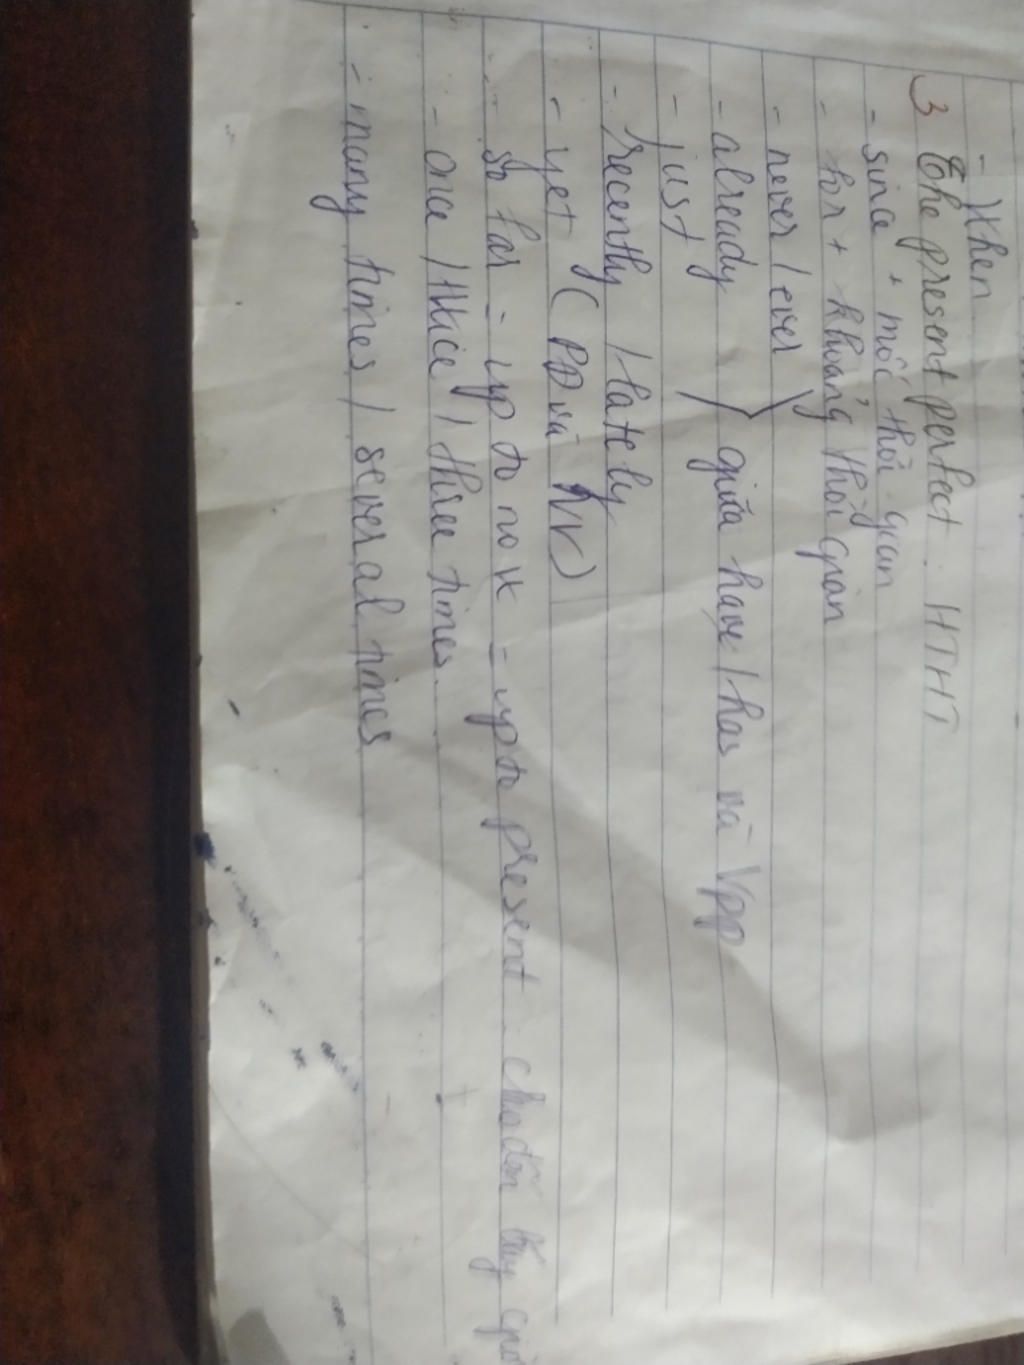 - When
3 The present perfect. HTHT
- since + mốc thời gian
- for + khoảng thời gian
- never / ever
- already } giữa have / has và Vpp
- just
- recently / lately
- yet ( PĐ và NV)
- so far = up to now = up to present cho đến bây giờ
- once / twice / three times.
- many times / several times